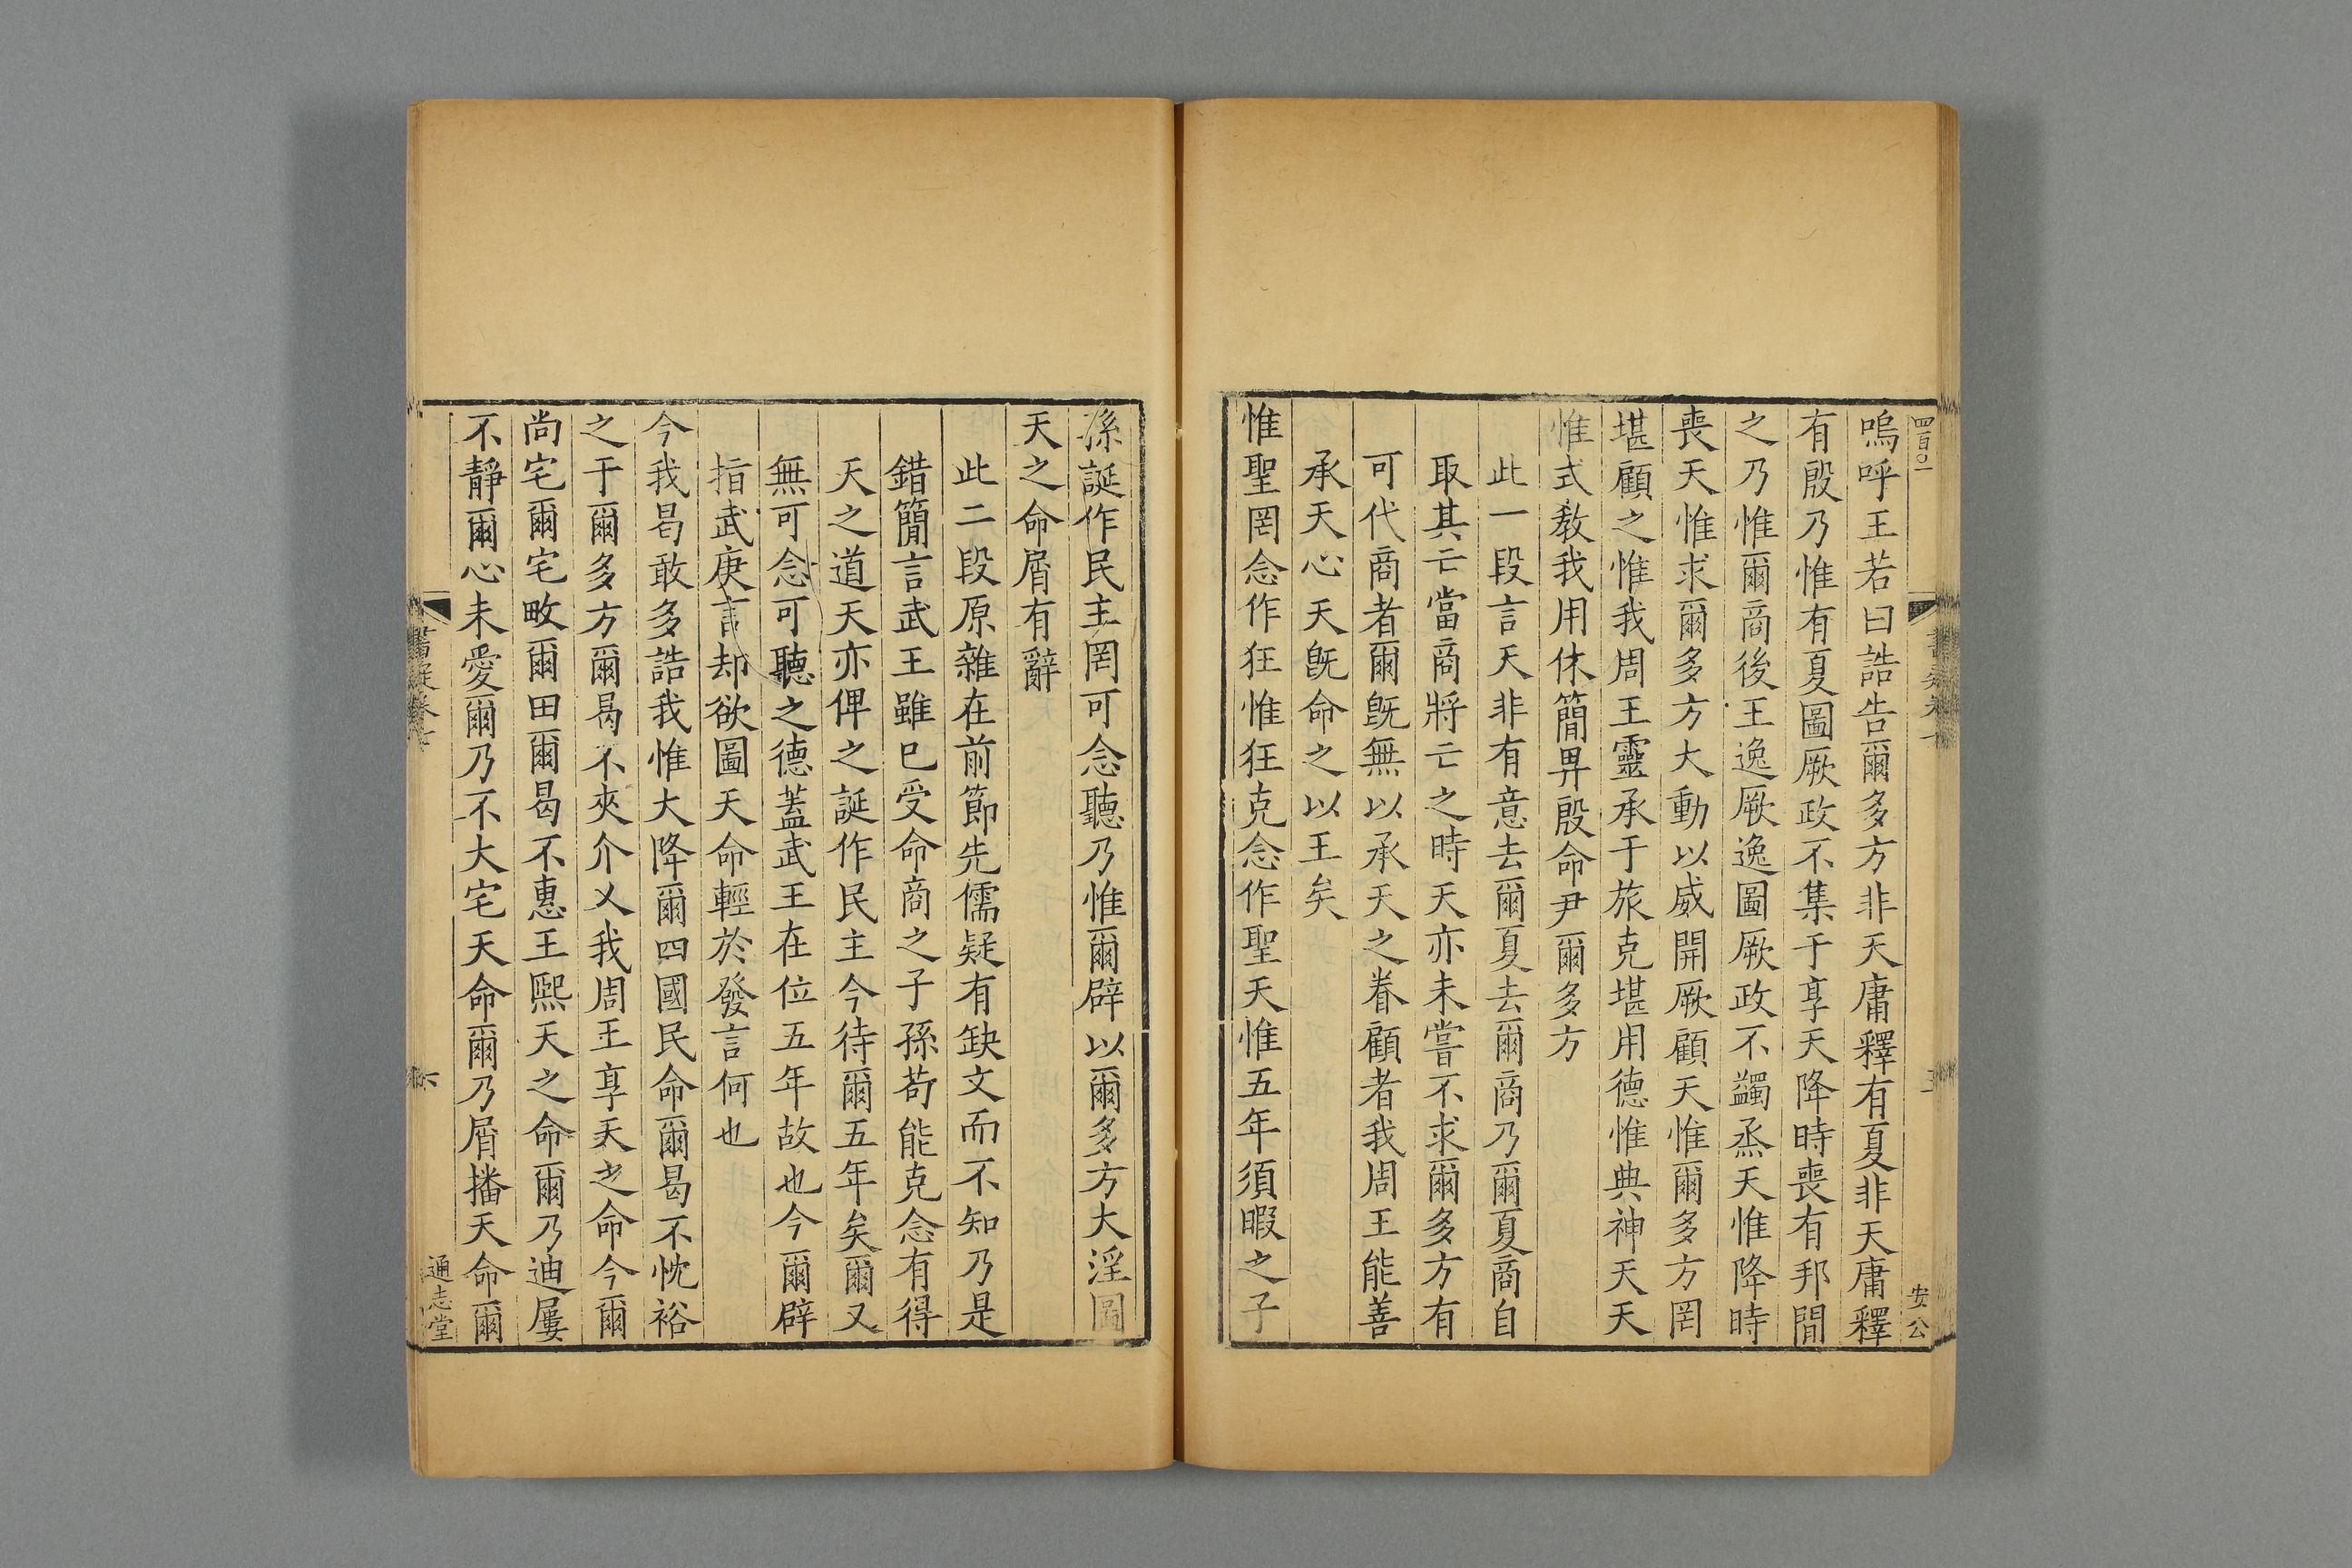 四百〇一
嗚呼王若曰誥告爾多方非天庸釋有夏非天庸釋
有殷乃惟有夏圖厥政不集于享天降時喪有邦間
之乃惟爾商後王逸厥逸圖厥政不蠲烝天惟降時
喪天惟求爾多方大動以威開厥顧天惟爾多方罔
堪顧之惟我周王靈承于旅克堪用德惟典神天天
惟式教我用休簡畀殷命尹爾多方
此一段言天非有意去爾夏去爾商乃爾夏商自
取其亡當商將亡之時天亦未嘗不求爾多方有
可代商者爾既無以承天之眷顧者我周王能善
承天心天既命之以王矣
惟聖罔念作狂惟狂克念作聖天惟五年須暇之子
安公
孫誕作民主罔可念聽乃惟爾辟以爾多方大淫圖
天之命屑有辭
此二段原雜在前節先儒疑有缺文而不知乃是
錯簡言武王雖已受命商之子孫苟能克念有得
天之道天亦俾之誕作民主今待爾五年矣爾又
無可念可聽之德蓋武王在位五年故也今爾辟
指武庚言却欲圖天命輕於發言何也
今我曷敢多誥我惟大降爾四國民命爾曷不忱裕
之于爾多方爾曷不夾介乂我周王享天之命今爾
尚宅爾宅畋爾田爾曷不惠王熙天之命爾乃迪屢
不靜爾心未愛爾乃不大宅天命爾乃屑播天命爾
通志堂